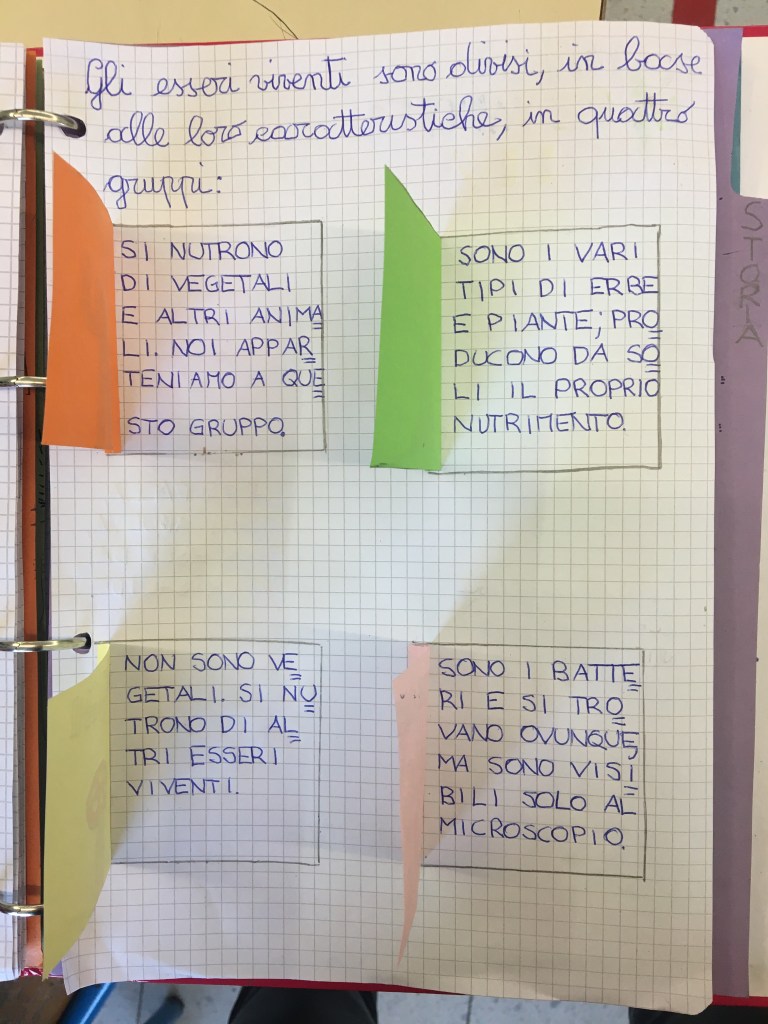 Gli esseri viventi sono divisi, in base
alle loro caratteristiche, in quattro
gruppi:
SI NUTRONO
DI VEGETALI
E ALTRI ANIMA
LI. NOI APPAR
TENIAMO A QUE
STO GRUPPO.
SONO I VARI
TIPI DI ERBE
E PIANTE; PRO
DUCONO DA SO
LI IL PROPRIO
NUTRIMENTO.
NON SONO VE
GETALI. SI NU
TRONO DI AL
TRI ESSERI
VIVENTI.
SONO I BATTE
RI E SI TRO
VANO OVUNQUE,
MA SONO VISI
BILI SOLO AL
MICROSCOPIO.
STORIA